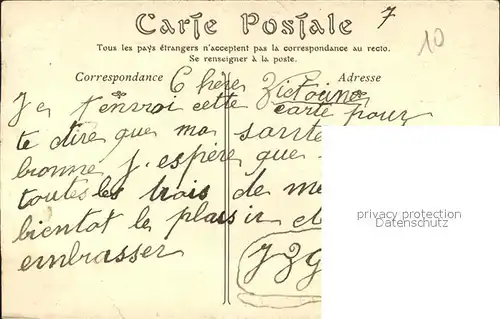 Carte Postale
7
10
Tous les pays étrangers n'acceptent pas la correspondance au recto.
Se renseigner à la poste.
Correspondance
Adresse
Chère Victoine
Je t'envoi cette carte pour
te dire que ma sante
bonne j. espère que
toutes les trois de me
bientot le plassir
embrasser
privacy protection
Datenschutz